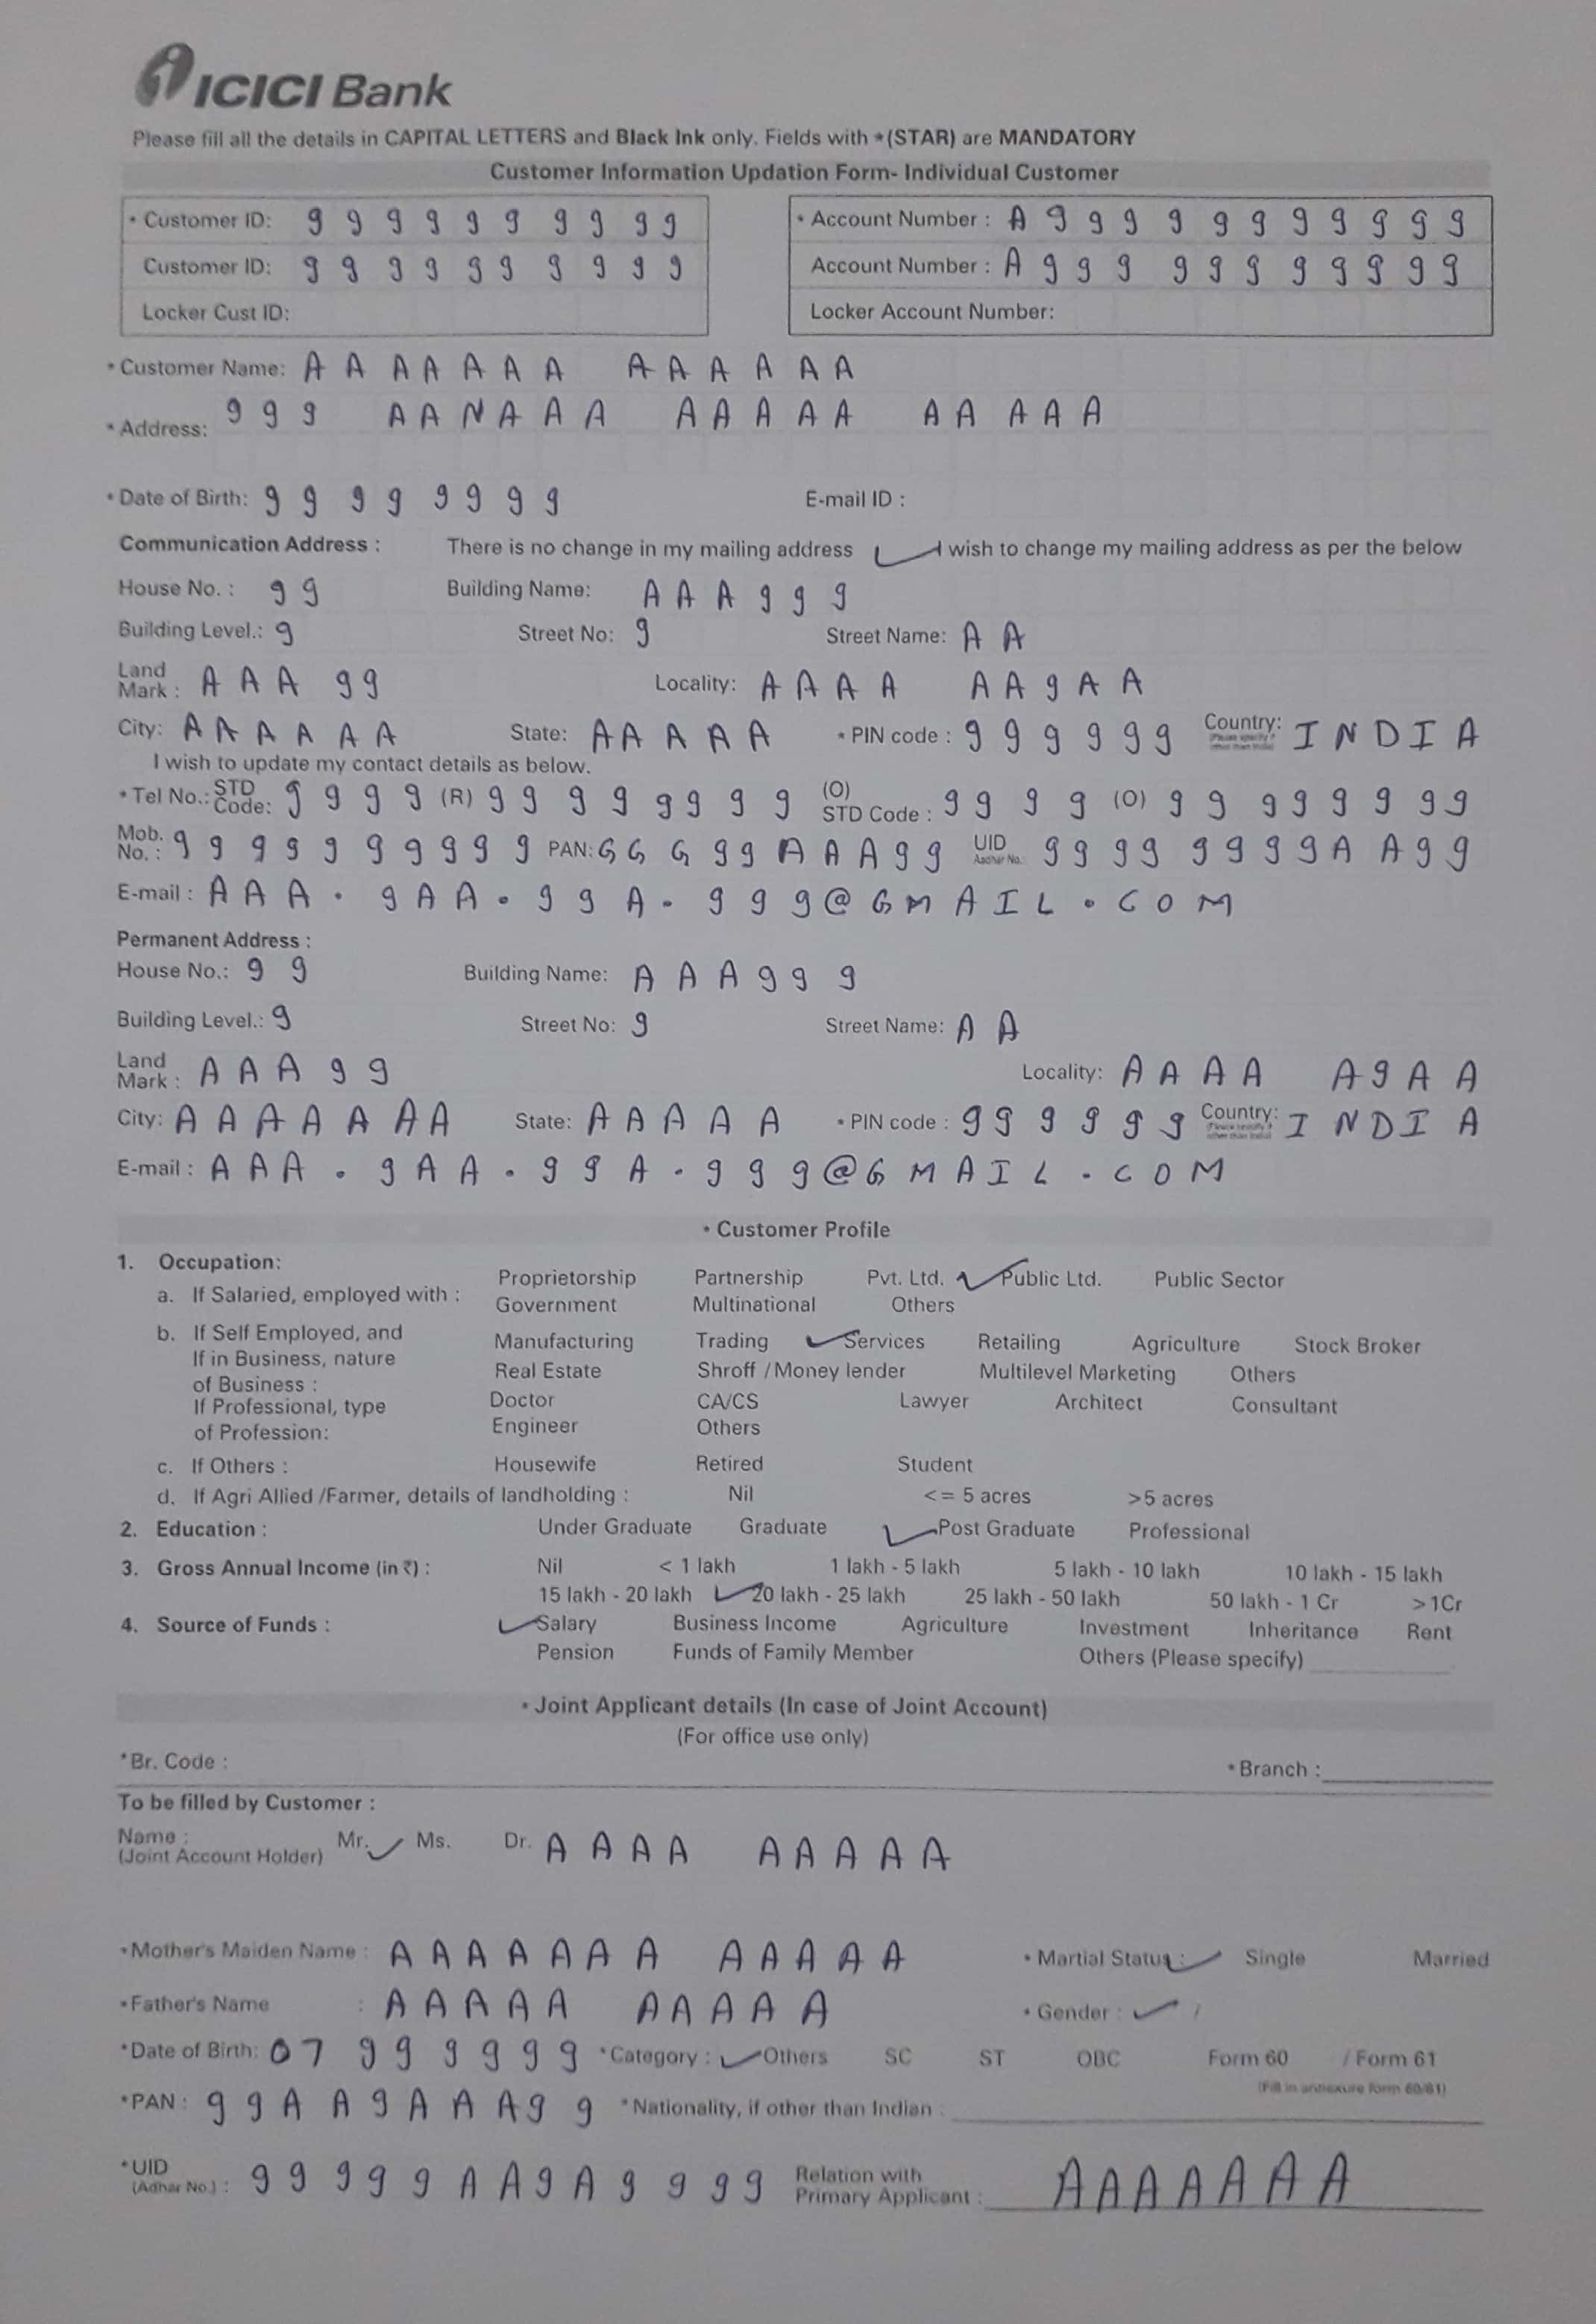 ICICI Bank
Please fill all the details in CAPITAL LETTERS and Black Ink only. Fields with *(STAR) are MANDATORY
Customer Information Updation Form- Individual Customer
* Customer ID: 9 9 9 9 9 9 9 9 9 9 * Account Number : A 9 9 9 9 9 9 9 9 9 9 9
Customer ID: 9 9 9 9 9 9 9 9 9 9 Account Number : A 9 9 9 9 9 9 9 9 9 9 9
Locker Cust ID: Locker Account Number:
* Customer Name: A A A A A A A A A A A A A
* Address: 9 9 9 A A N A A A A A A A A A A A A A
* Date of Birth: 9 9 9 9 9 9 9 9 E-mail ID :
Communication Address : There is no change in my mailing address ✓ I wish to change my mailing address as per the below
House No. : 9 9 Building Name: A A A 9 9 9
Building Level.: 9 Street No: 9 Street Name: A A
Land Mark : A A A 9 9 Locality: A A A A A A 9 A A
City: A A A A A A State: A A A A A * PIN code : 9 9 9 9 9 9 Country: I N D I A
I wish to update my contact details as below.
* Tel No.: STD Code: 9 9 9 9 (R) 9 9 9 9 9 9 9 9 (O) STD Code : 9 9 9 9 (O) 9 9 9 9 9 9 9 9
Mob. No. : 9 9 9 9 9 9 9 9 9 9 PAN: G G G 9 9 A A A 9 9 UID Aadhar No. 9 9 9 9 9 9 9 9 A A 9 9
E-mail : A A A . 9 A A . 9 9 A . 9 9 9 @ G M A I L . C O M
Permanent Address :
House No.: 9 9 Building Name: A A A 9 9 9
Building Level.: 9 Street No: 9 Street Name: A A
Land Mark : A A A 9 9 Locality: A A A A A 9 A A
City: A A A A A A A State: A A A A A * PIN code : 9 9 9 9 9 9 Country: I N D I A
E-mail : A A A . 9 A A . 9 9 A . 9 9 9 @ G M A I L . C O M
* Customer Profile
1. Occupation:
a. If Salaried, employed with : Proprietorship Partnership Pvt. Ltd. ✓ Public Ltd. Public Sector
Government Multinational Others
b. If Self Employed, and If in Business, nature of Business : Manufacturing Trading ✓ Services Retailing Agriculture Stock Broker
Real Estate Shroff / Money lender Multilevel Marketing Others
If Professional, type of Profession: Doctor CA/CS Lawyer Architect Consultant
Engineer Others
c. If Others : Housewife Retired Student
d. If Agri Allied /Farmer, details of landholding : Nil <= 5 acres >5 acres
2. Education : Under Graduate Graduate ✓ Post Graduate Professional
3. Gross Annual Income (in ₹) : Nil < 1 lakh 1 lakh - 5 lakh 5 lakh - 10 lakh 10 lakh - 15 lakh
15 lakh - 20 lakh ✓ 20 lakh - 25 lakh 25 lakh - 50 lakh 50 lakh - 1 Cr >1Cr
4. Source of Funds : ✓ Salary Business Income Agriculture Investment Inheritance Rent
Pension Funds of Family Member Others (Please specify)
* Joint Applicant details (In case of Joint Account)
(For office use only)
*Br. Code : * Branch :
To be filled by Customer :
Name : (Joint Account Holder) Mr. ✓ Ms. Dr. A A A A A A A A A
*Mother's Maiden Name : A A A A A A A A A A A A * Martial Status : ✓ Single Married
*Father's Name : A A A A A A A A A A * Gender : ✓ /
*Date of Birth: 0 7 9 9 9 9 9 9 *Category : ✓ Others SC ST OBC Form 60 / Form 61
(Fill in annexure form 60/61)
*PAN : 9 9 A A 9 A A A 9 9 *Nationality, if other than Indian :
*UID (Adhar No.) : 9 9 9 9 9 A A 9 A 9 9 9 9 Relation with Primary Applicant : A A A A A A A